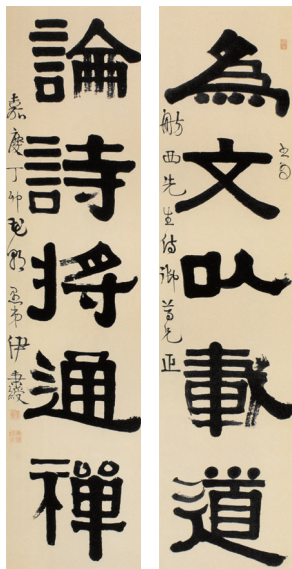 爲文以載道
舫西先生侍御尊兄正
論詩將通禪
嘉慶丁卯花朝愚弟伊秉綬